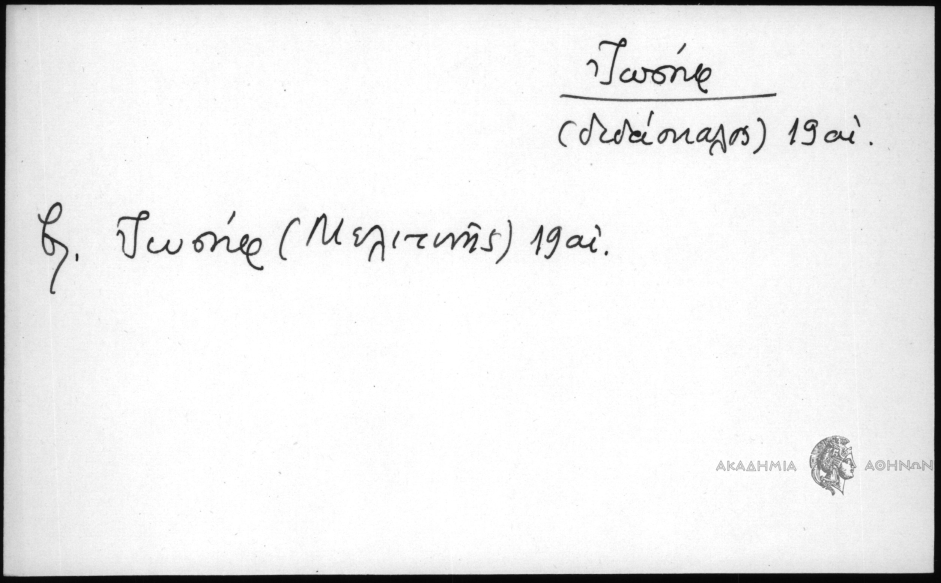 Ἰωσήφ
(διδάσκαλος) 19 αἰ.
βλ. Ἰωσήφ (Μελιτινῆς) 19 αἰ.
ΑΚΑΔΗΜΙΑ ΑΘΗΝΩΝ